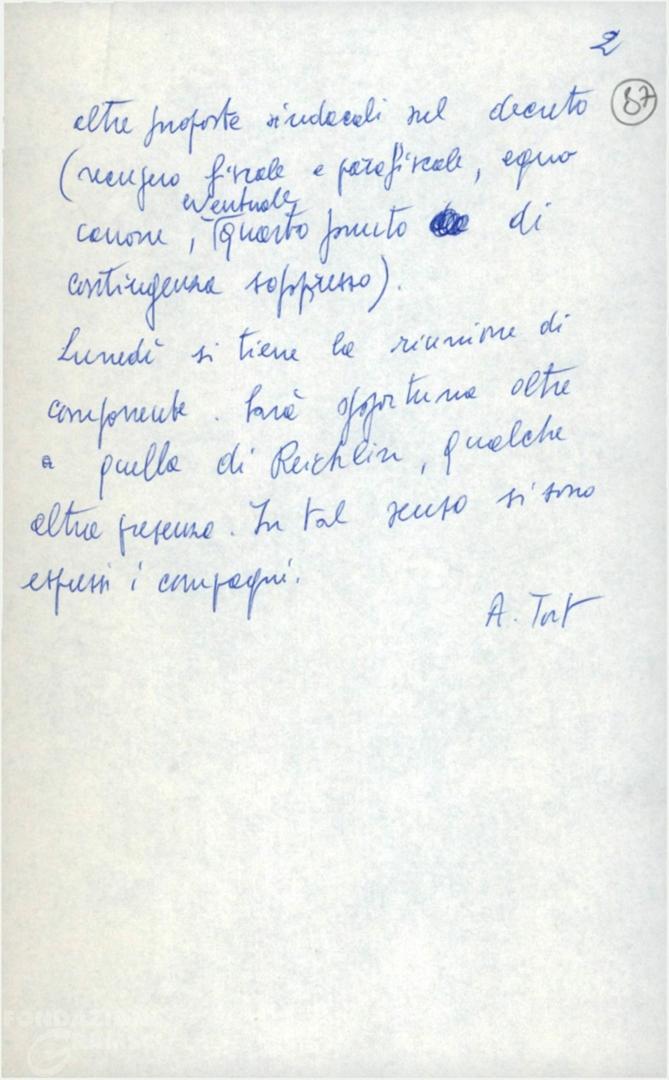 2
87
altre proposte sindacali sul decreto
(recupero fiscale e parafiscale, equo
eventuale
canone, quarto punto di
contingenza soppresso).
Lunedì si tiene la riunione di
componente. Sarà opportuna oltre
a quella di Reichlin, qualche
altra presenza. In tal senso si sono
espressi i compagni.
A. Tort
FONDAZIONE
GRAMSCI